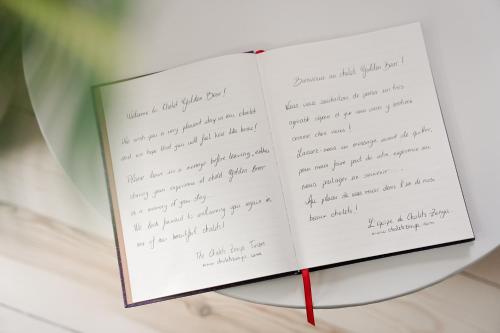 Welcome to Chalet Golden Bear!
We wish you a very pleasant stay in our chalet
and we hope that you will feel like home!
Please leave us a message before leaving, either
sharing your experience at chalet Golden Bear
or a memory of your stay...
We look forward to welcoming you again in
one of our beautiful chalets!
The Chalets Zenya Team
Bienvenue au chalet Golden Bear!
Nous vous souhaitons de passer un très
agréable séjour et que vous vous y sentirez
comme chez vous!
Laissez-nous un message avant de quitter,
pour nous faire part de votre expérience ou
nous partager un souvenir...
Au plaisir de vous revoir dans l'un de nos
beaux chalets!
L'équipe de Chalets Zenya